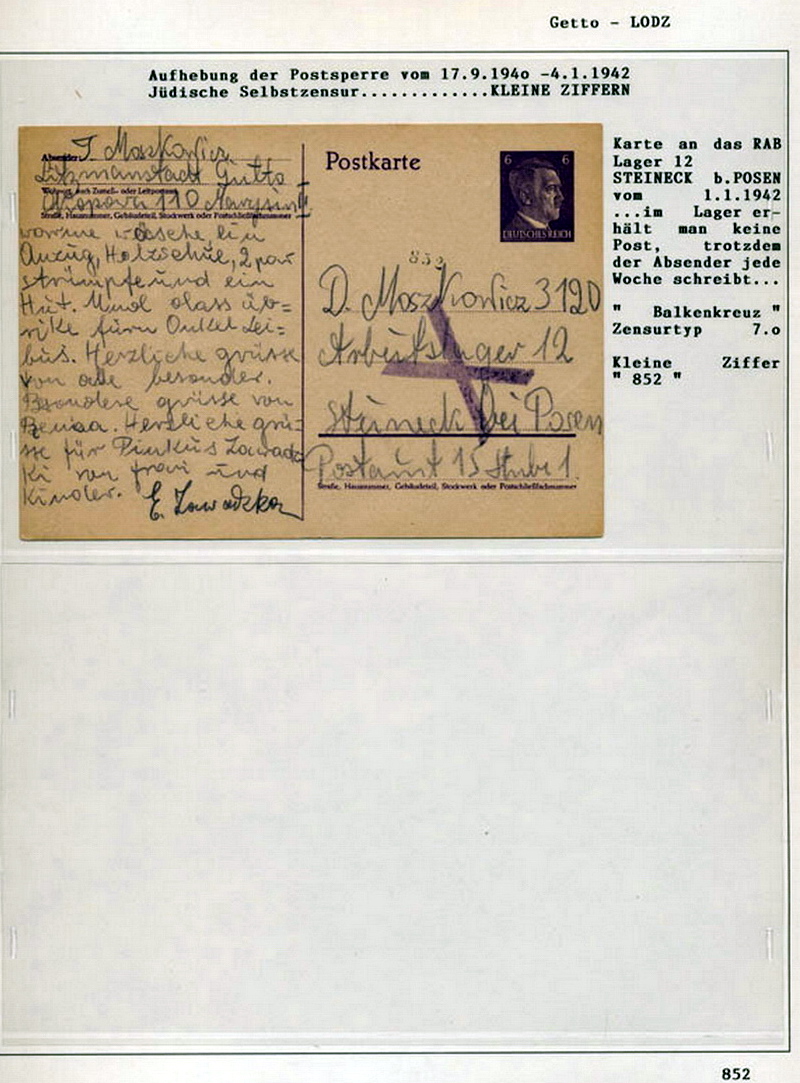 Getto - LODZ
Aufhebung der Postsperre vom 17.9.194o -4.1.1942
Jüdische Selbstzensur.............KLEINE ZIFFERN
Absender: J. Moszkowicz
Litzmannstadt Getto
Wohnort, auch Zustell- oder Leitpostamt
110 Marysin
Straße, Hausnummer, Gebäudeteil, Stockwerk oder Postschließfachnummer
warme wäsche ein
Anzug, Holzschue, 2 par
strümpfe und ein
Hut. Und dass üb=
rike fürn Onkel Lei=
bus. Herzliche grüsse
von ale besonder.
Besondere grüsse von
Herzliche grü=
sse für Pinkus Zawadz
ki von frau und
Kinder.
E. Zawadzka
Postkarte
6 6
DEUTSCHES REICH
852
D. Moszkowicz 3120
Arbeitslager 12
Steineck bei Posen
Postamt 15 Stube 1.
Straße, Hausnummer, Gebäudeteil, Stockwerk oder Postschließfachnummer
Karte an das RAB
Lager 12
STEINECK b.POSEN
vom 1.1.1942
...im Lager er-
hält man keine
Post, trotzdem
der Absender jede
Woche schreibt...
" Balkenkreuz "
Zensurtyp 7.o
Kleine Ziffer
" 852 "
852